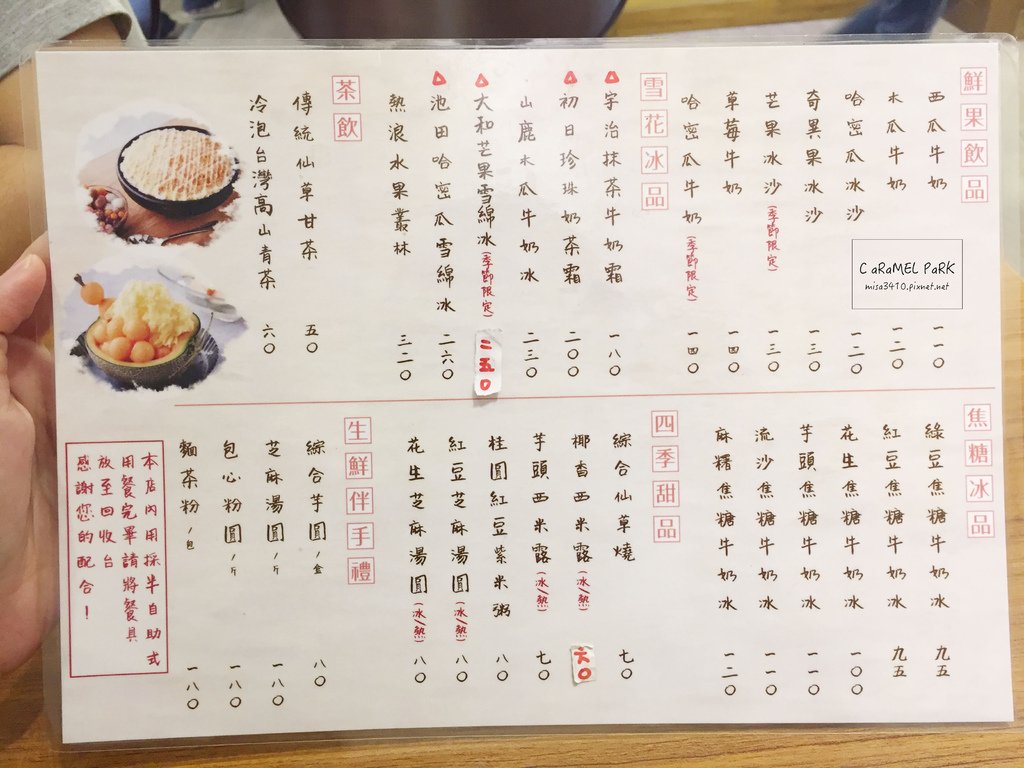 鮮果飲品
西瓜牛奶 一一〇
木瓜牛奶 一二〇
哈密瓜冰沙 一二〇
奇異果冰沙 一三〇
芒果冰沙(季節限定) 一三〇
草莓牛奶 一四〇
哈密瓜牛奶(季節限定) 一四〇
雪花冰品
宇治抹茶牛奶霜 一八〇
初日珍珠奶茶霜 二〇〇
山鹿木瓜牛奶冰 二三〇
大和芒果雪綿冰(季節限定) 二五〇
池田哈密瓜雪綿冰 二六〇
熱浪水果叢林 三二〇
茶飲
傳統仙草甘茶 五〇
冷泡台灣高山青茶 六〇
CARAMEL PARK
misa3410.pixnet.net
焦糖冰品
綠豆焦糖牛奶冰 九五
紅豆焦糖牛奶冰 九五
花生焦糖牛奶冰 一〇〇
芋頭焦糖牛奶冰 一一〇
流沙焦糖牛奶冰 一一〇
麻糬焦糖牛奶冰 一二〇
四季甜品
綜合仙草燒 七〇
椰香西米露(冰/熱) 六〇
芋頭西米露(冰/熱) 七〇
桂圓紅豆紫米粥 八〇
紅豆芝麻湯圓(冰/熱) 八〇
花生芝麻湯圓(冰/熱) 八〇
生鮮伴手禮
綜合芋圓/盒 八〇
芝麻湯圓/斤 一八〇
包心粉圓/斤 一八〇
麵茶粉/包 一八〇
本店內用採半自助式
用餐完畢請將餐具
放至回收台
感謝您的配合！